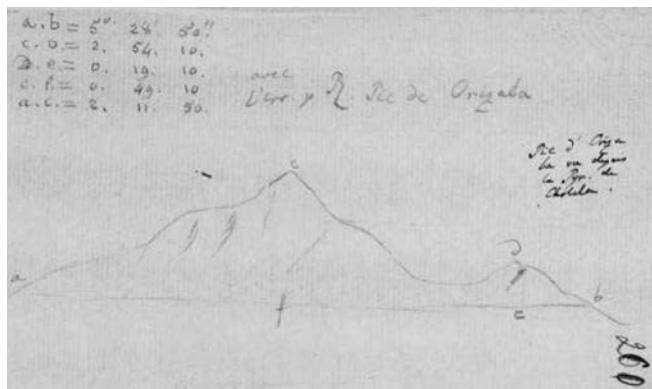 a.b = 5° 28' 50''
c.D = 2. 54. 10.
D.e = 0. 19. 10.
c.f. = 0. 49. 10
a.c. = 2. 11. 50.
avec
l'err. Pic de Orizaba
Pic d'Oriza
ba vu depuis
la Pyr. de
Cholula.
c
D
a
b
f
e
260